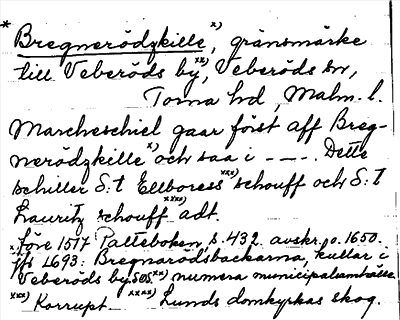 * Bregnerödzkille x), gränsmärke
till Veberöds by xx), Veberöds sn,
Torna hd, Malm. l.
Marcheschiel gaar först aff Breg-
nerödzkille x) och saa i - - - . Dette
schiller S:t Ellboress xxx) schouff och S:t
Lauritz schouff xxxx) adt.
Före 1517 Palteboken, s. 432 avskr. o. 1650.
x) jfr L693: Bregnarödsbackarna, kullar i
Veberöds by. SOS. xx) numera municipalsamhälle.
xxx) Korrupt. xxxx) Lunds domkyrkas skog.